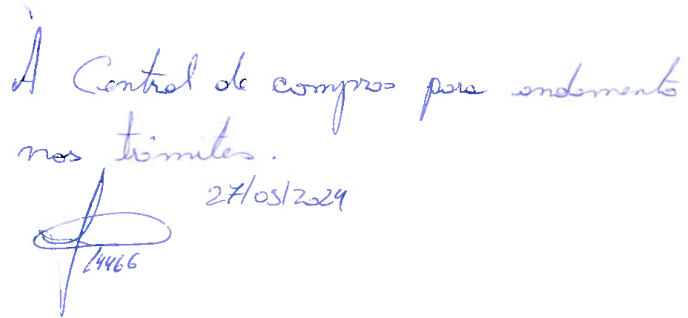 À Central de compras para andamento
nos trâmites.
27/05/2024
14466